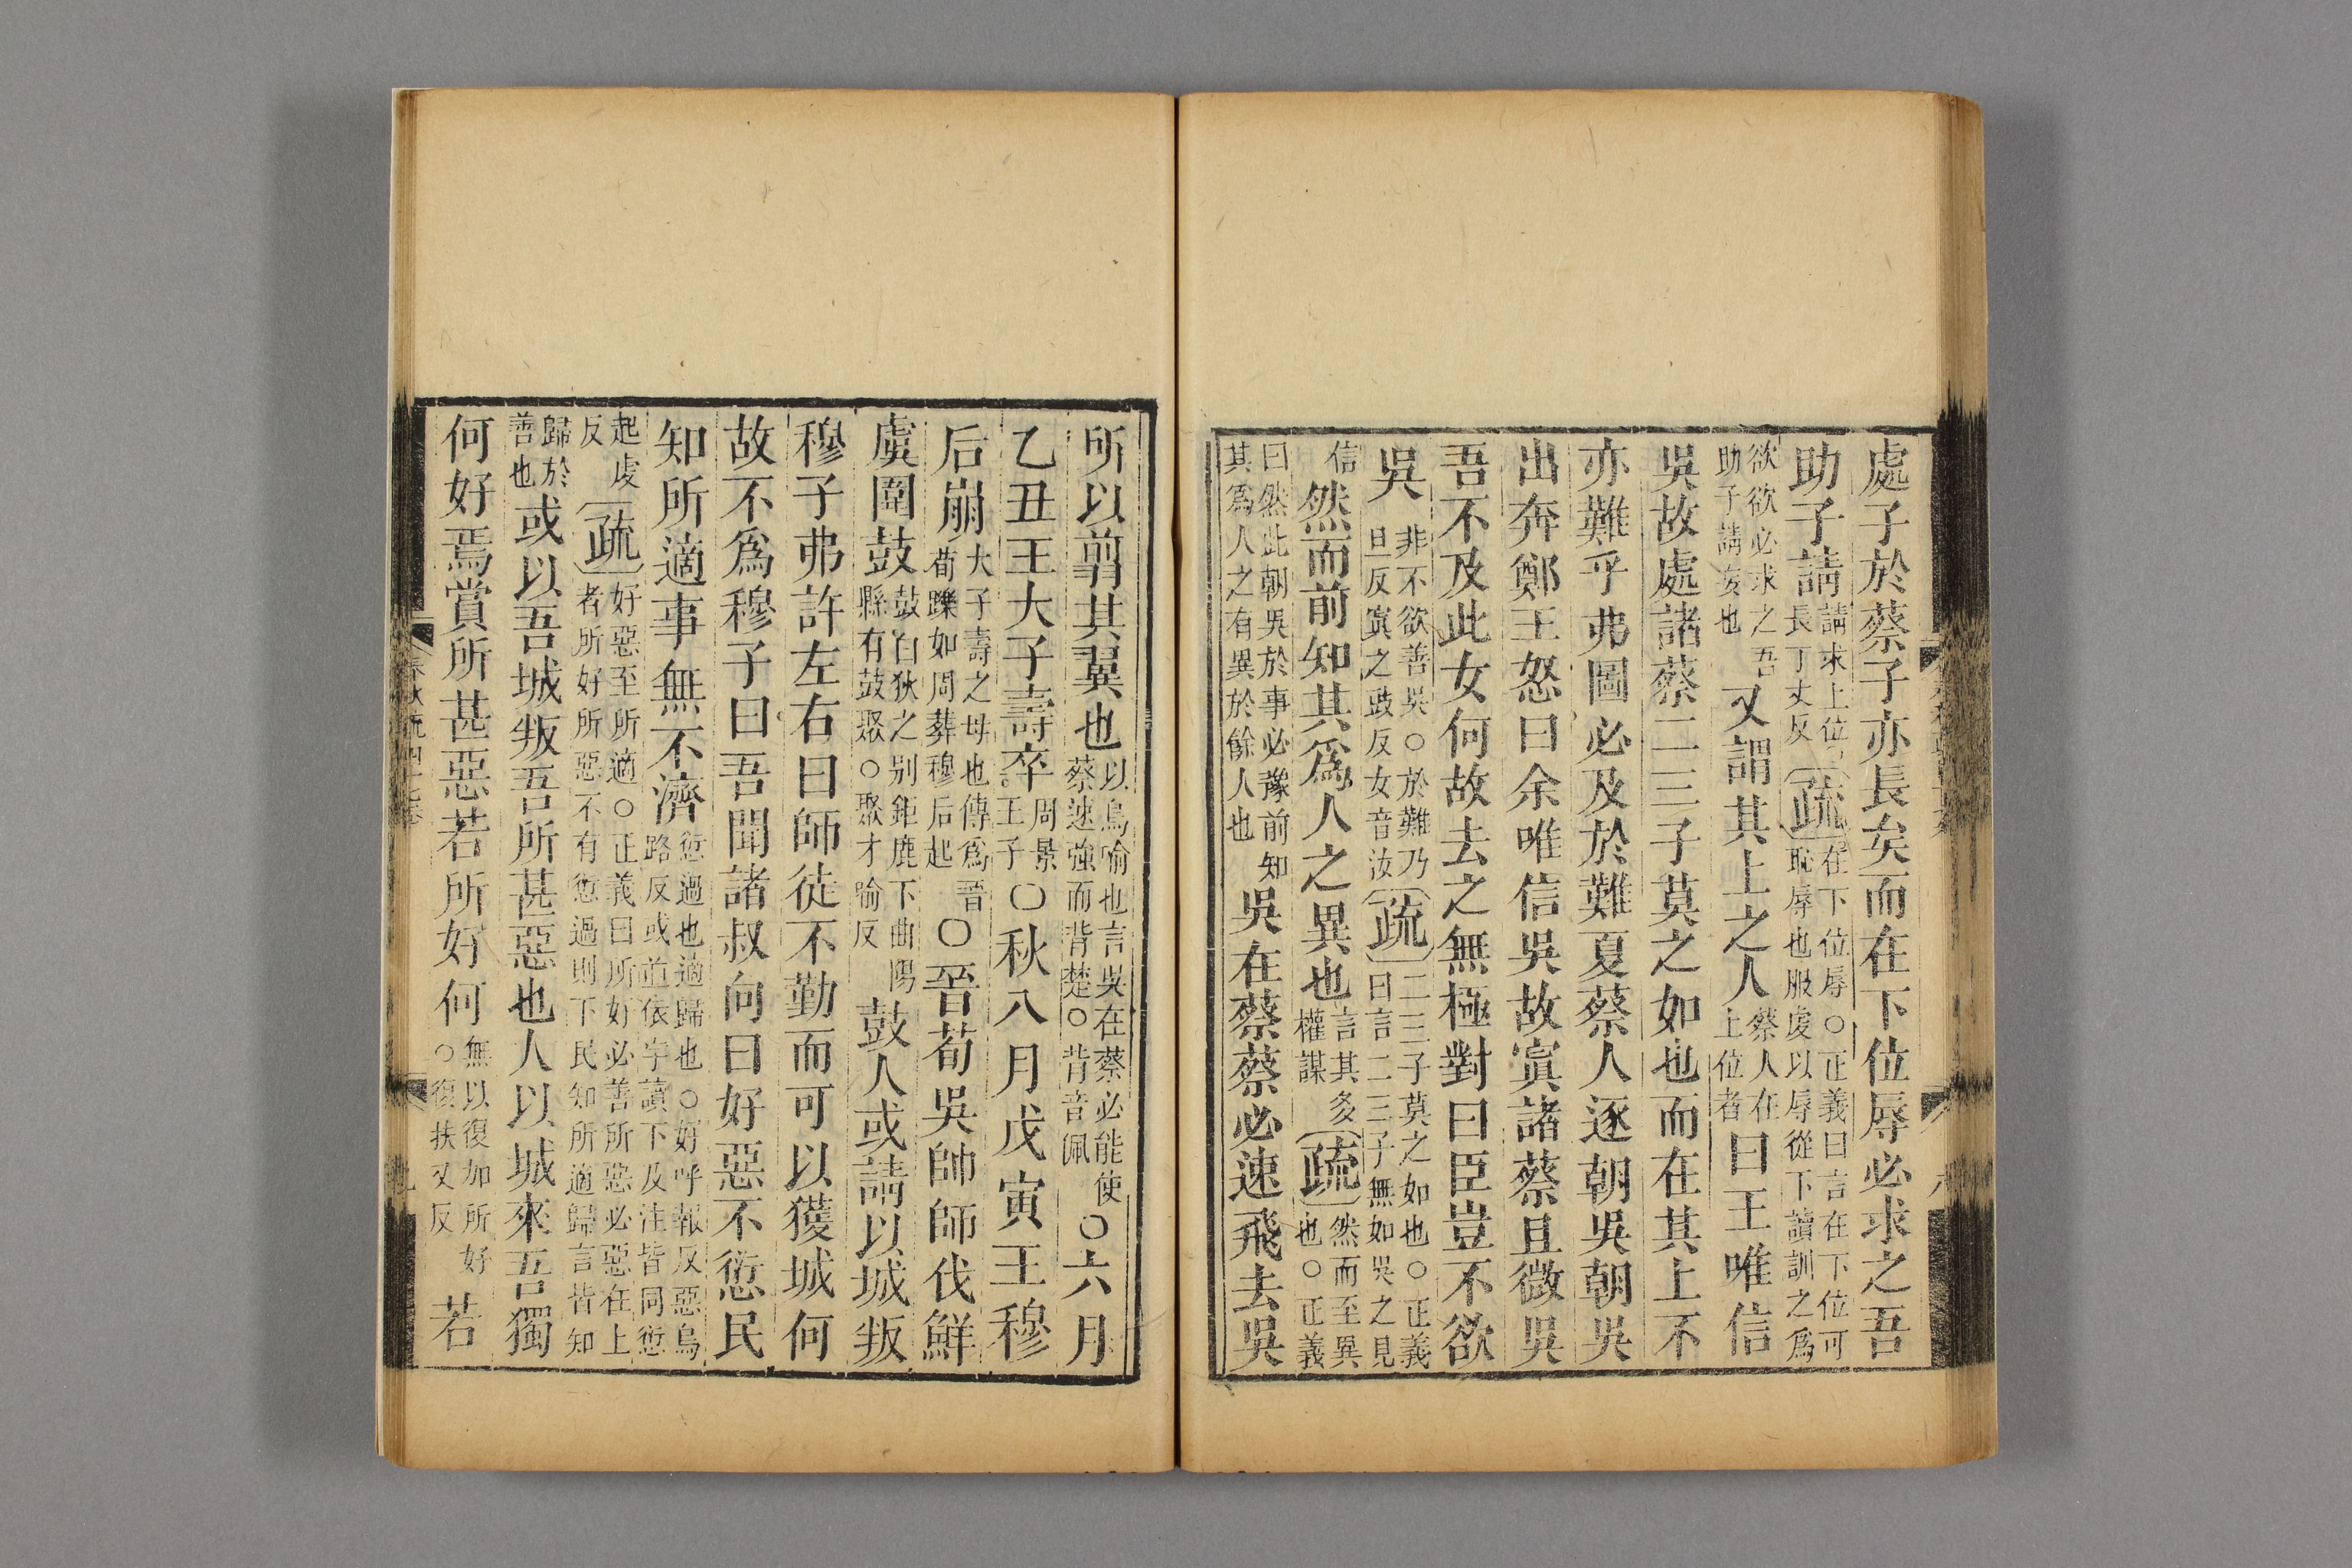 處子於蔡子亦長矣而在下位辱必求之吾
助子請請求上位○長丁丈反疏在下位辱○正義曰言在下位可恥辱也服虔以辱從下讀訓之爲
欲欲必求之吾助子請妄也又謂其上之人蔡人在上位者曰王唯信
吳故處諸蔡二三子莫之如也而在其上不
亦難乎弗圖必及於難夏蔡人逐朝吳朝吳
出奔鄭王怒曰余唯信吳故寘諸蔡且微吳
吾不及此女何故去之無極對曰臣豈不欲
吳非不欲善吳○於難乃旦反寘之豉反女音汝疏二三子莫之如也○正義曰言二三子無如吳之見
信然而前知其爲人之異也言其多權謀疏然而至異也○正義
曰然此朝吳於事必豫前知其爲人之有異於餘人也吳在蔡蔡必速飛去吳
所以翦其翼也以鳥喻也言吳在蔡必能使蔡速強而背楚○背音佩○六月
乙丑王大子壽卒周景王子○秋八月戊寅王穆
后崩大子壽之母也傳爲晉荀躒如周葬穆后起○晉荀吳帥師伐鮮
虞圍鼓鼓白狄之别鉅鹿下曲陽縣有鼓聚○聚才喻反鼓人或請以城叛
穆子弗許左右曰師徒不勤而可以獲城何
故不爲穆子曰吾聞諸叔向曰好惡不愆民
知所適事無不濟愆過也適歸也○好呼報反惡烏路反或並依字讀下及注皆同愆
起虔反疏好惡至所適○正義曰所好必善所惡必惡在上者所好所惡不有愆過則下民知所適歸言皆知
歸於善也或以吾城叛吾所甚惡也人以城來吾獨
何好焉賞所甚惡若所好何無以復加所好○復扶又反若